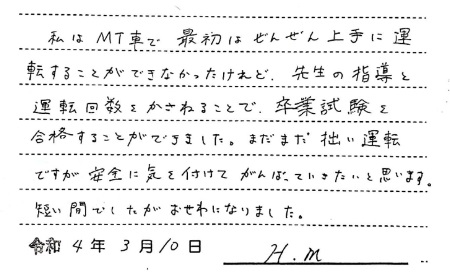 私はMT車で最初はぜんぜん上手に運
転することができなかったけれど、先生の指導と
運転回数をかさねることで、卒業試験を
合格することができました。まだまだ拙い運転
ですが安全に気を付けてがんばっていきたいと思います。
短い間でしたがおせわになりました。
令和4年3月10日 H.M